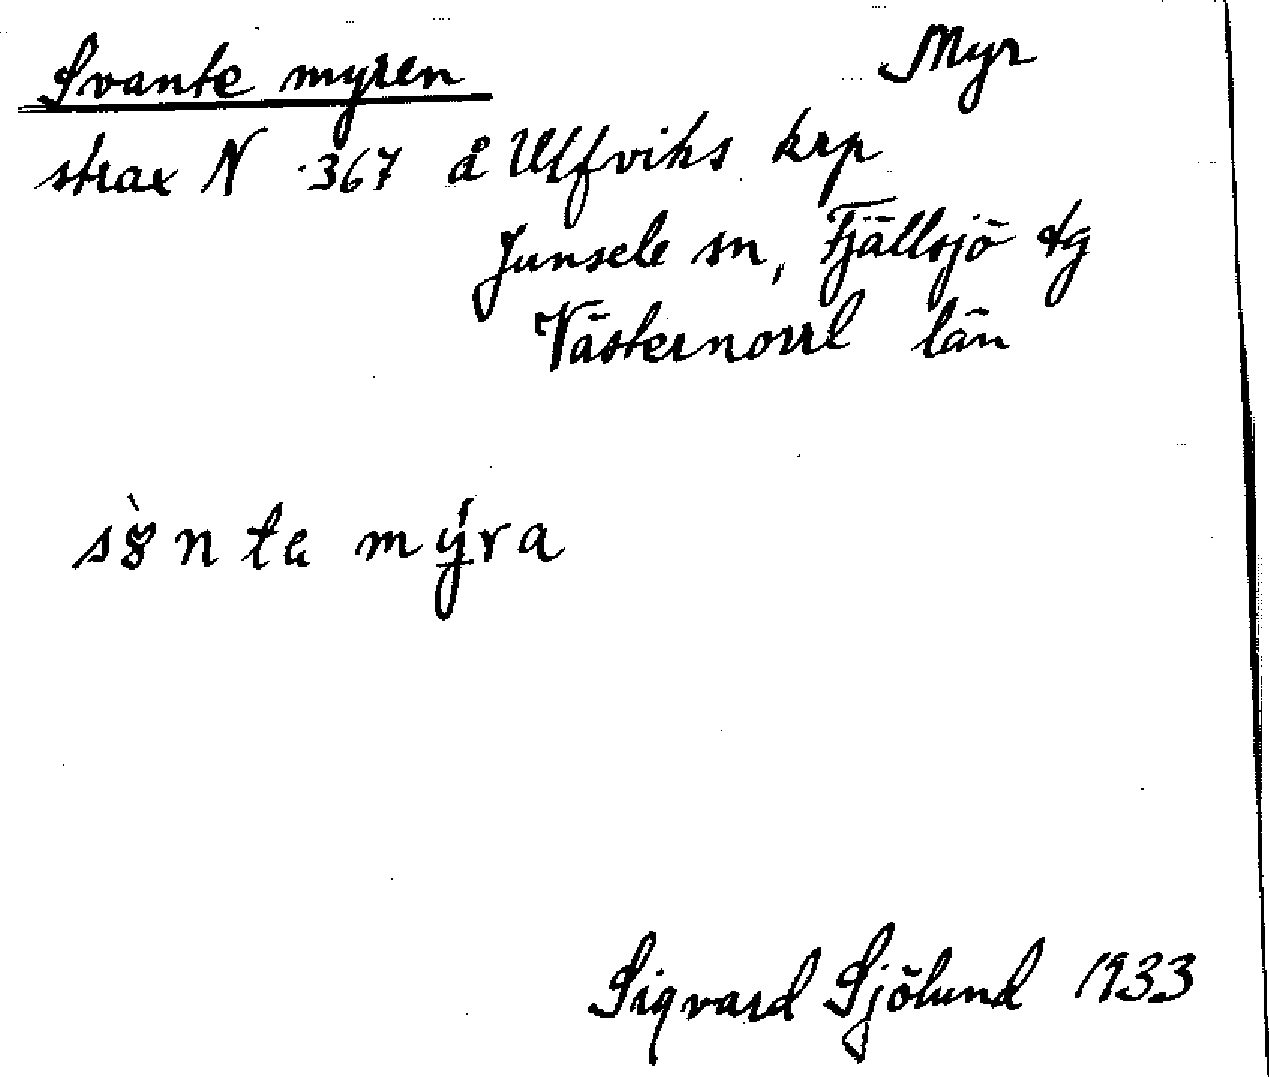 Svante myren
Myr
strax N 367 å Ulfviks krp
Junsele sn, Fjällsjö tg
Västernorrl län
myra
Sigvard Sjölund 1933